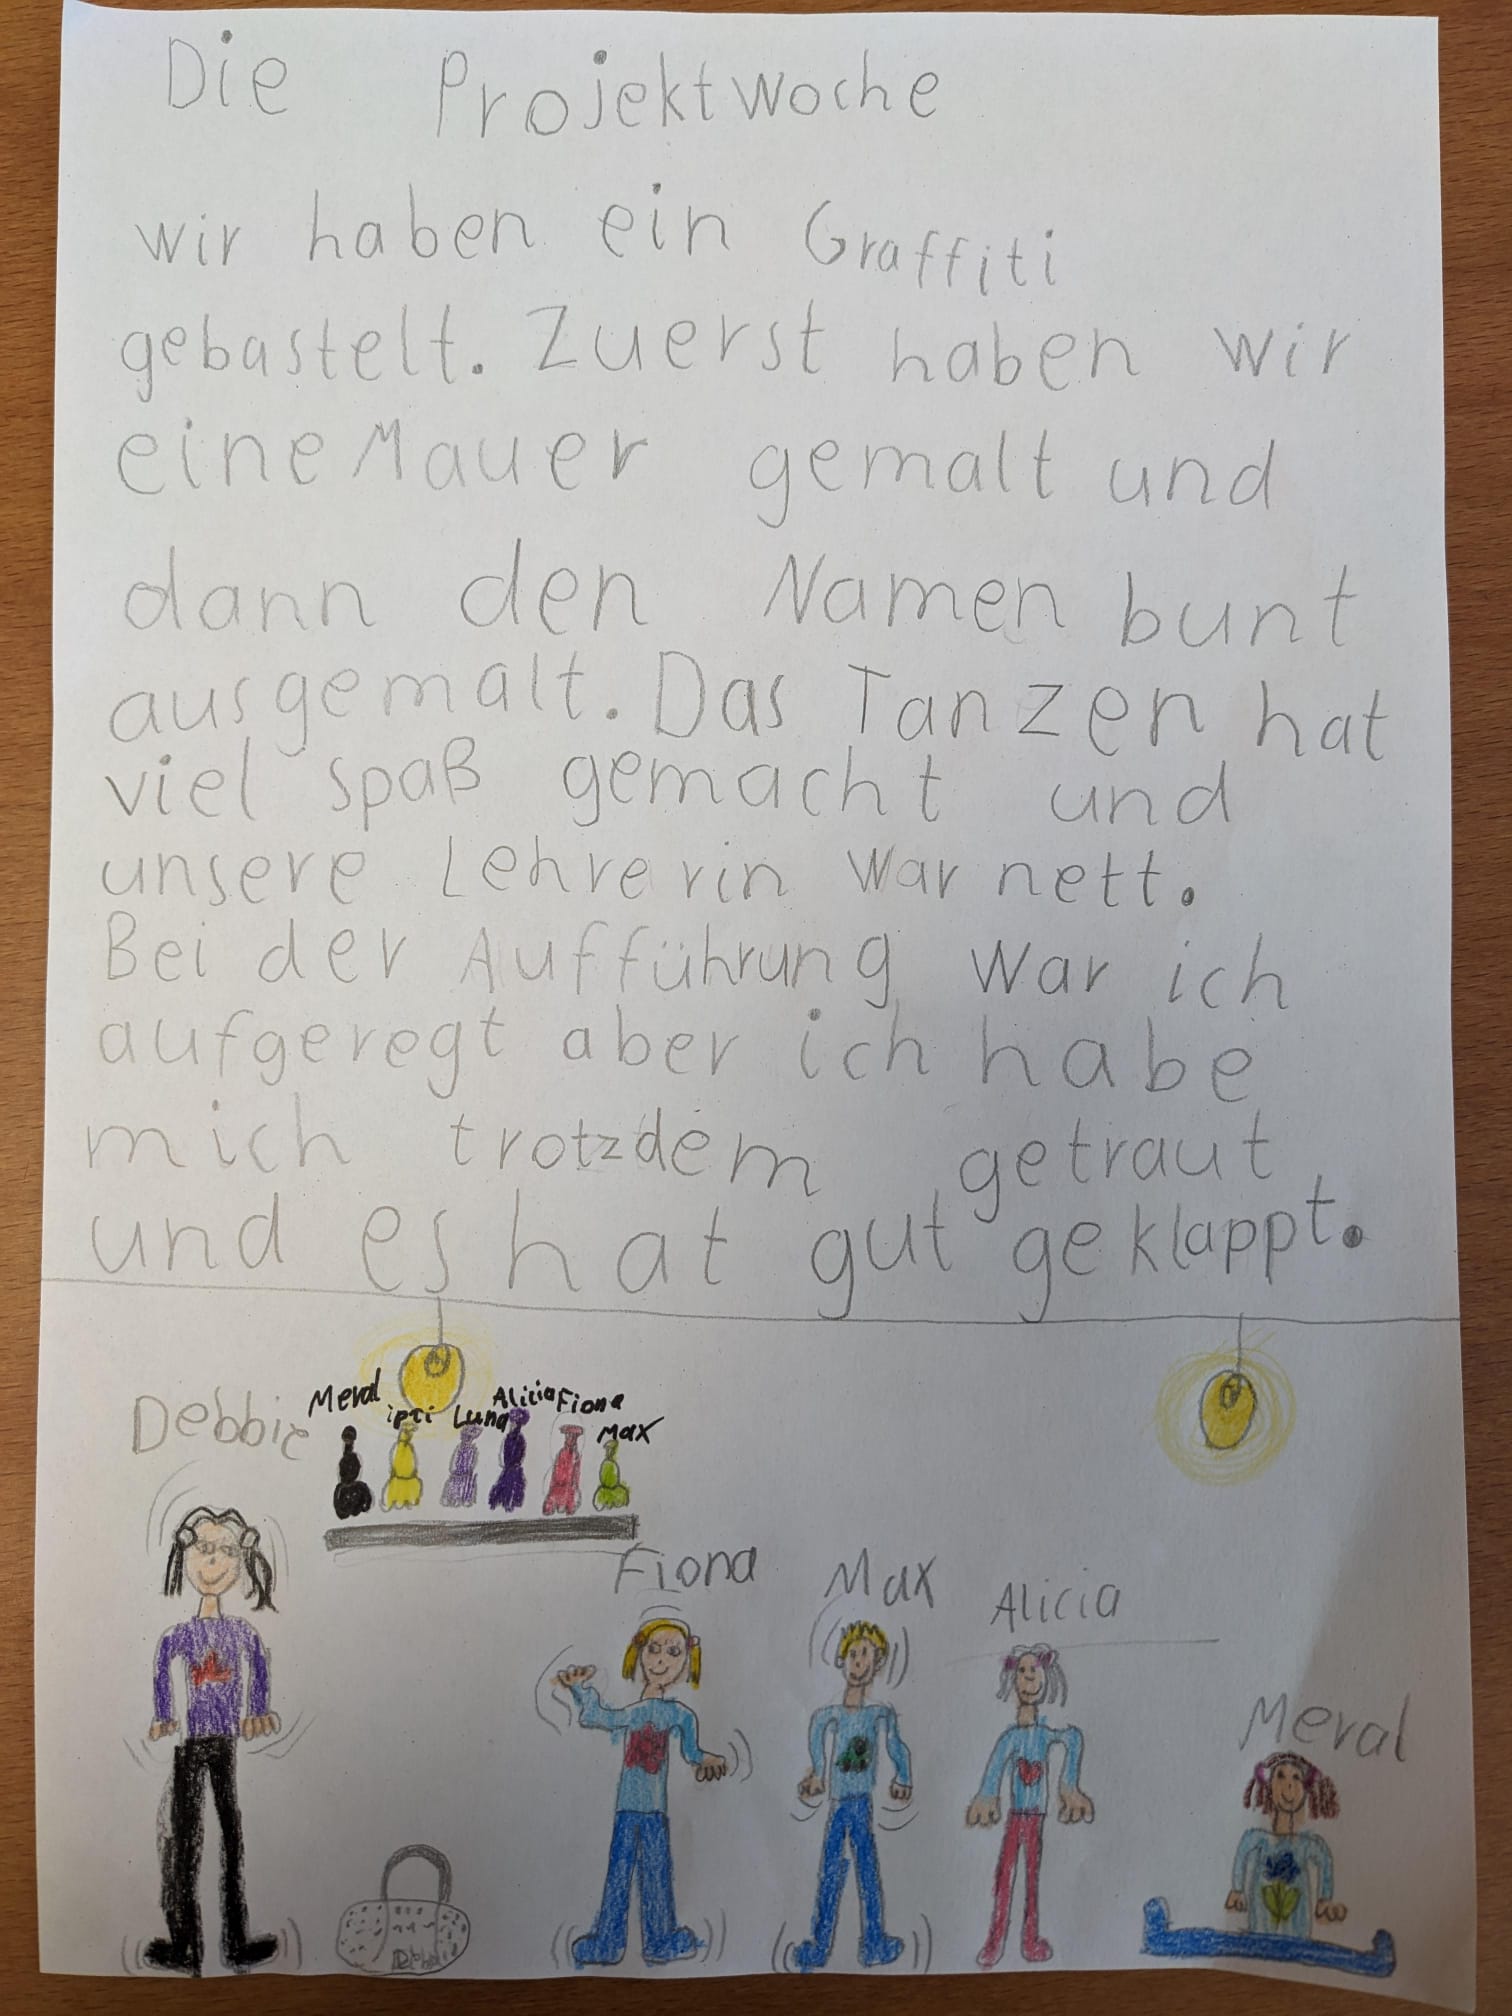 Die Projektwoche
wir haben ein Graffiti
gebastelt. Zuerst haben wir
eine Mauer gemalt und
dann den Namen bunt
ausgemalt. Das Tanzen hat
viel spaß gemacht und
unsere Lehrerin war nett.
Bei der Aufführung war ich
aufgeregt aber ich habe
mich trotzdem getraut
und es hat gut geklappt.
Debbie
Meral ipti Luna Alicia Fiona Max
Fiona Max Alicia
Meral